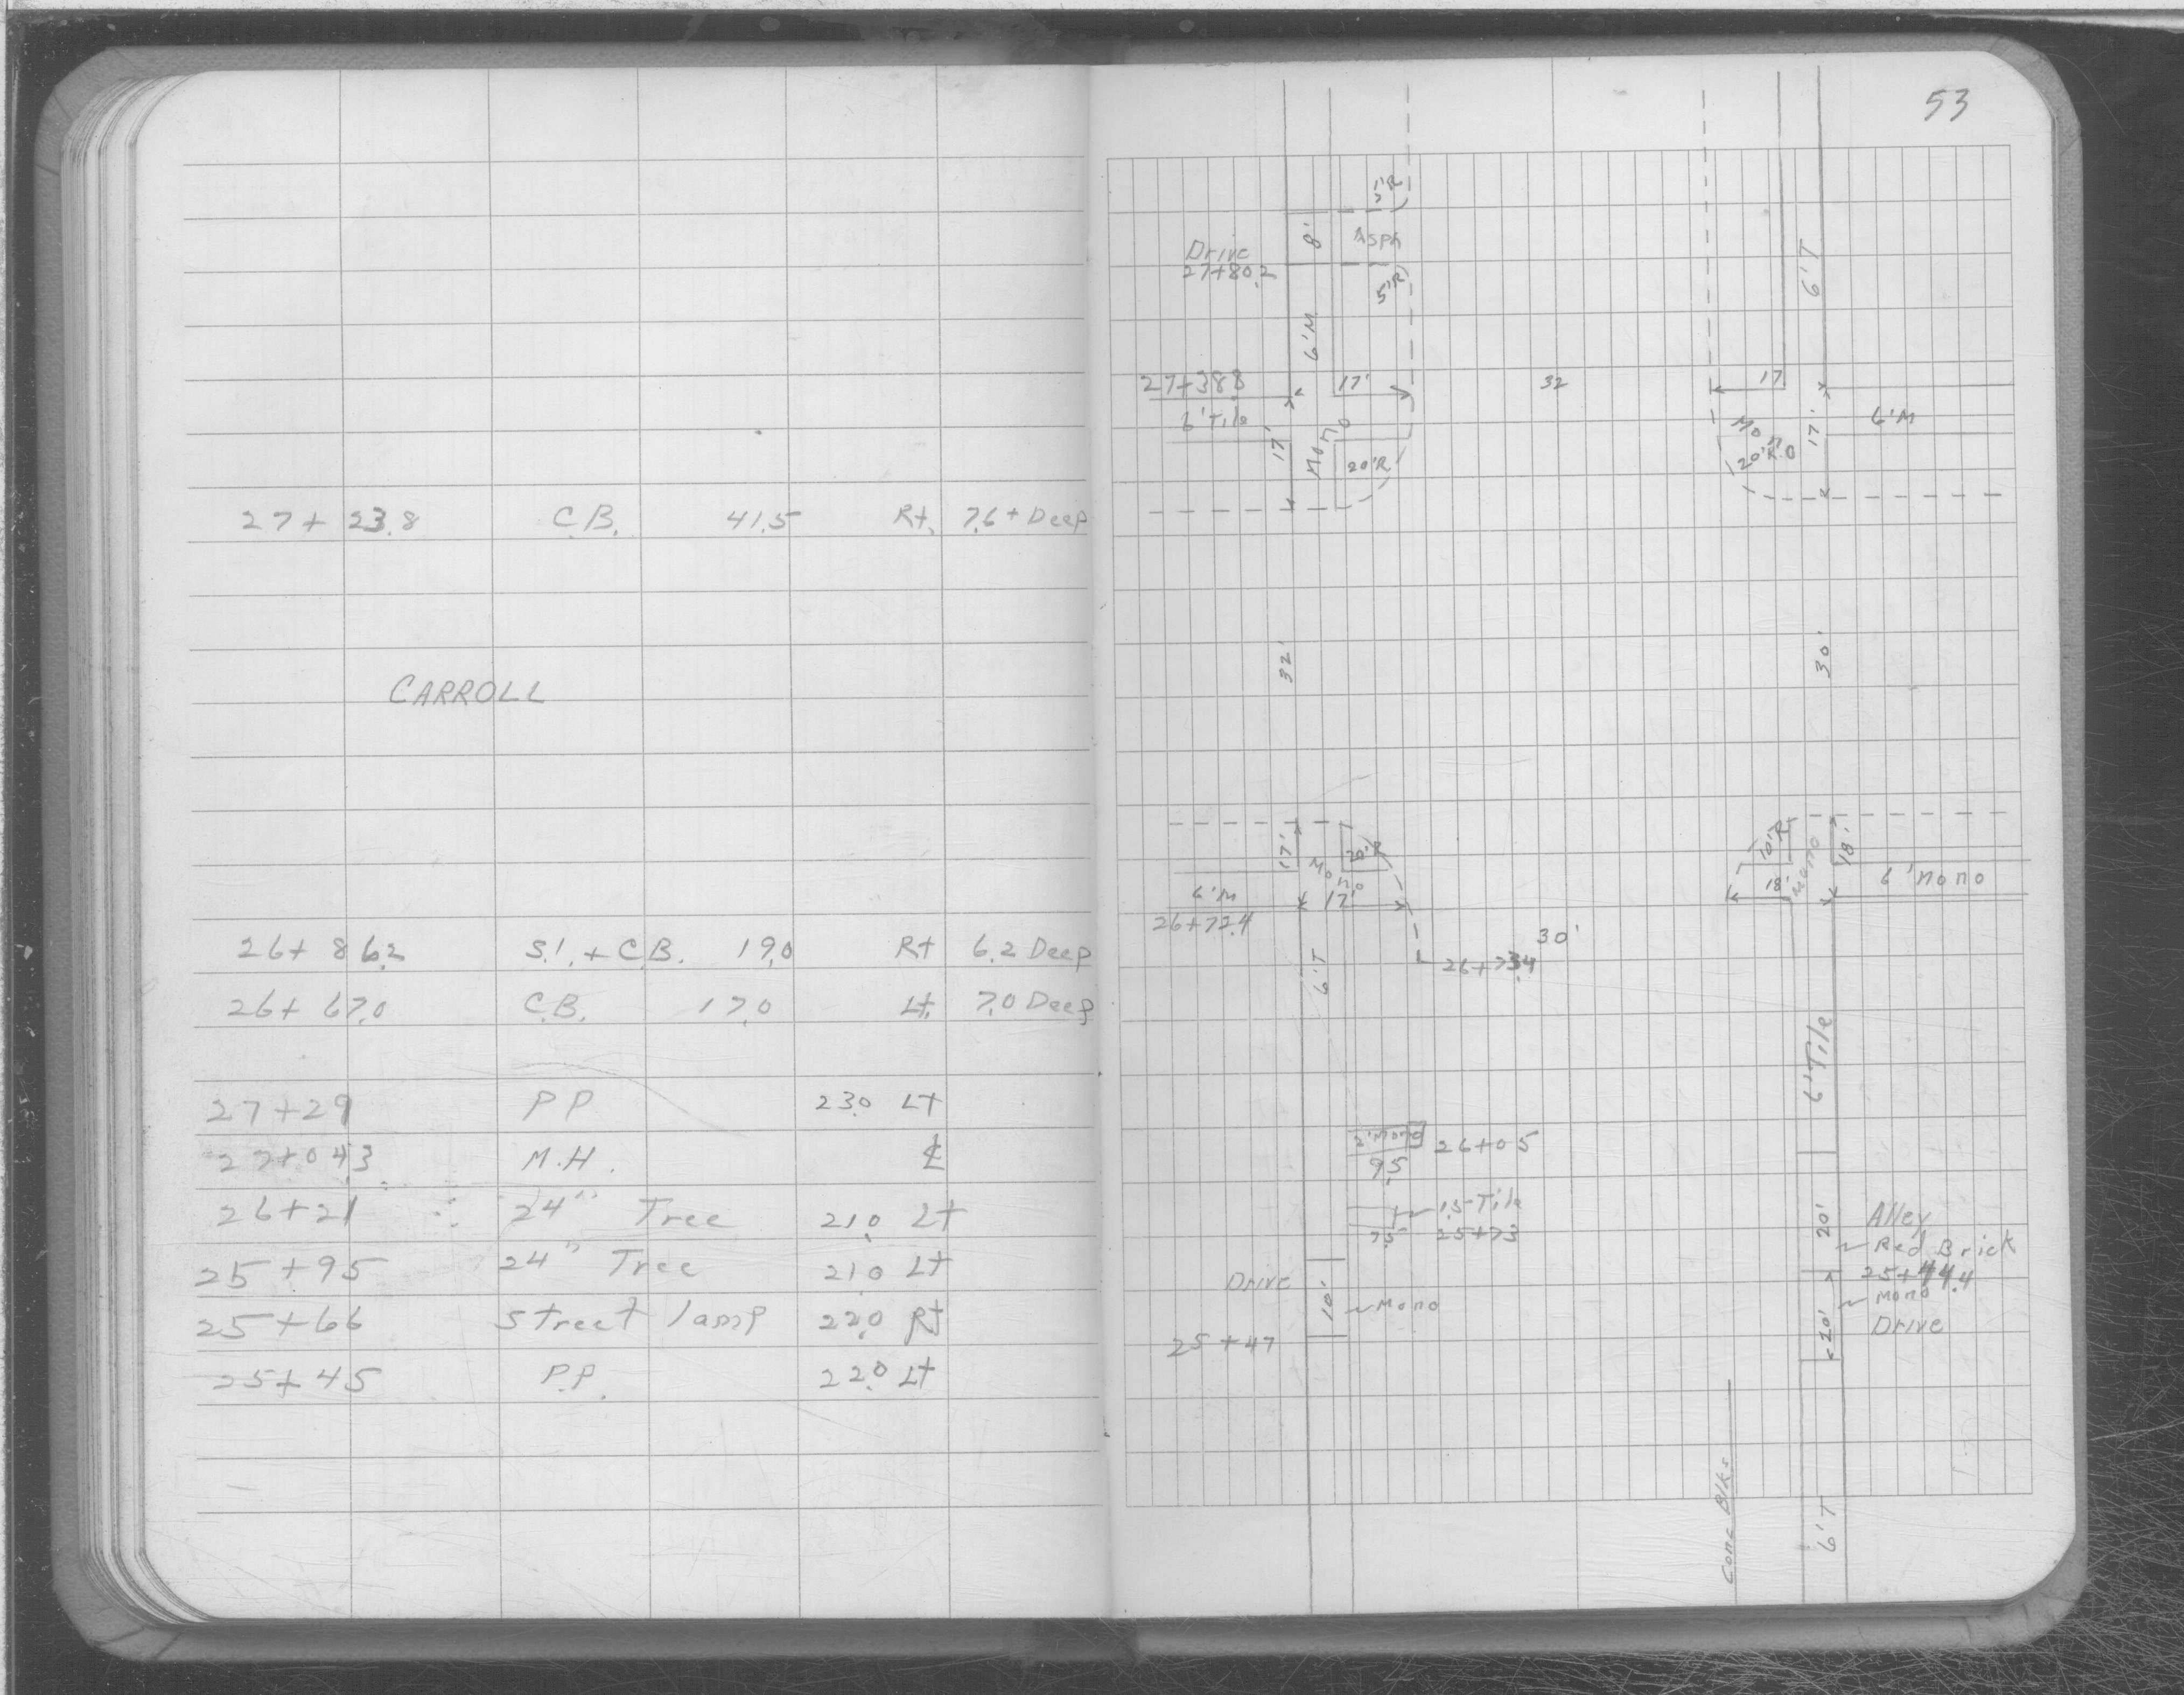 27+23.8 C.B. 41.5 Rt. 7.6+ Deep
CARROLL
26+86.2 S.I.+C.B. 19.0 Rt 6.2 Deep
26+67.0 C.B. 17.0 Lt. 7.0 Deep
27+29 PP 23.0 Lt
27+04.3 M.H. ℄
26+21 24" Tree 21.0 Lt
25+95 24" Tree 21.0 Lt
25+66 Street lamp 22.0 Rt
25+45 P.P. 22.0 Lt
53
5'R
8' Asph
Drive
27+80.2
5'R
6'T
6'M
27+38.8 17' 32 17
6'Tile 17' Mono 20'R
Mono 20'R 17' 6'M
32' 30'
17' Mono 20'R
10'R Mono 18'
6'M 17' 18' 6'Mono
26+72.4
30'
6'T 26+73.4
6'Tile
2'Mono 26+05
9.5
1.5 Tile
7.5 25+73
20' Alley
Red Brick
25+44.4
Drive 10' Mono
Mono
20' Drive
25+47
Conc Blks
6'T